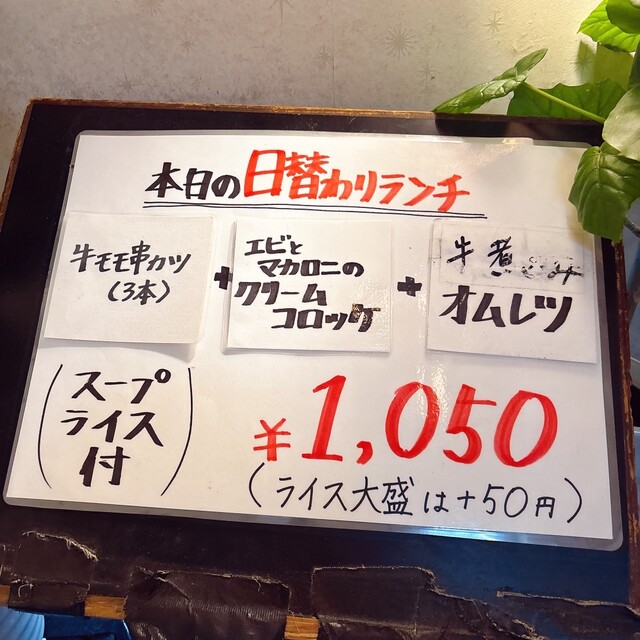 本日の日替わりランチ
牛モモ串カツ
(3本)
+
エビと
マカロニの
クリーム
コロッケ
+
牛煮込み
オムレツ
(スープ
ライス
付)
¥1,050
(ライス大盛は+50円)